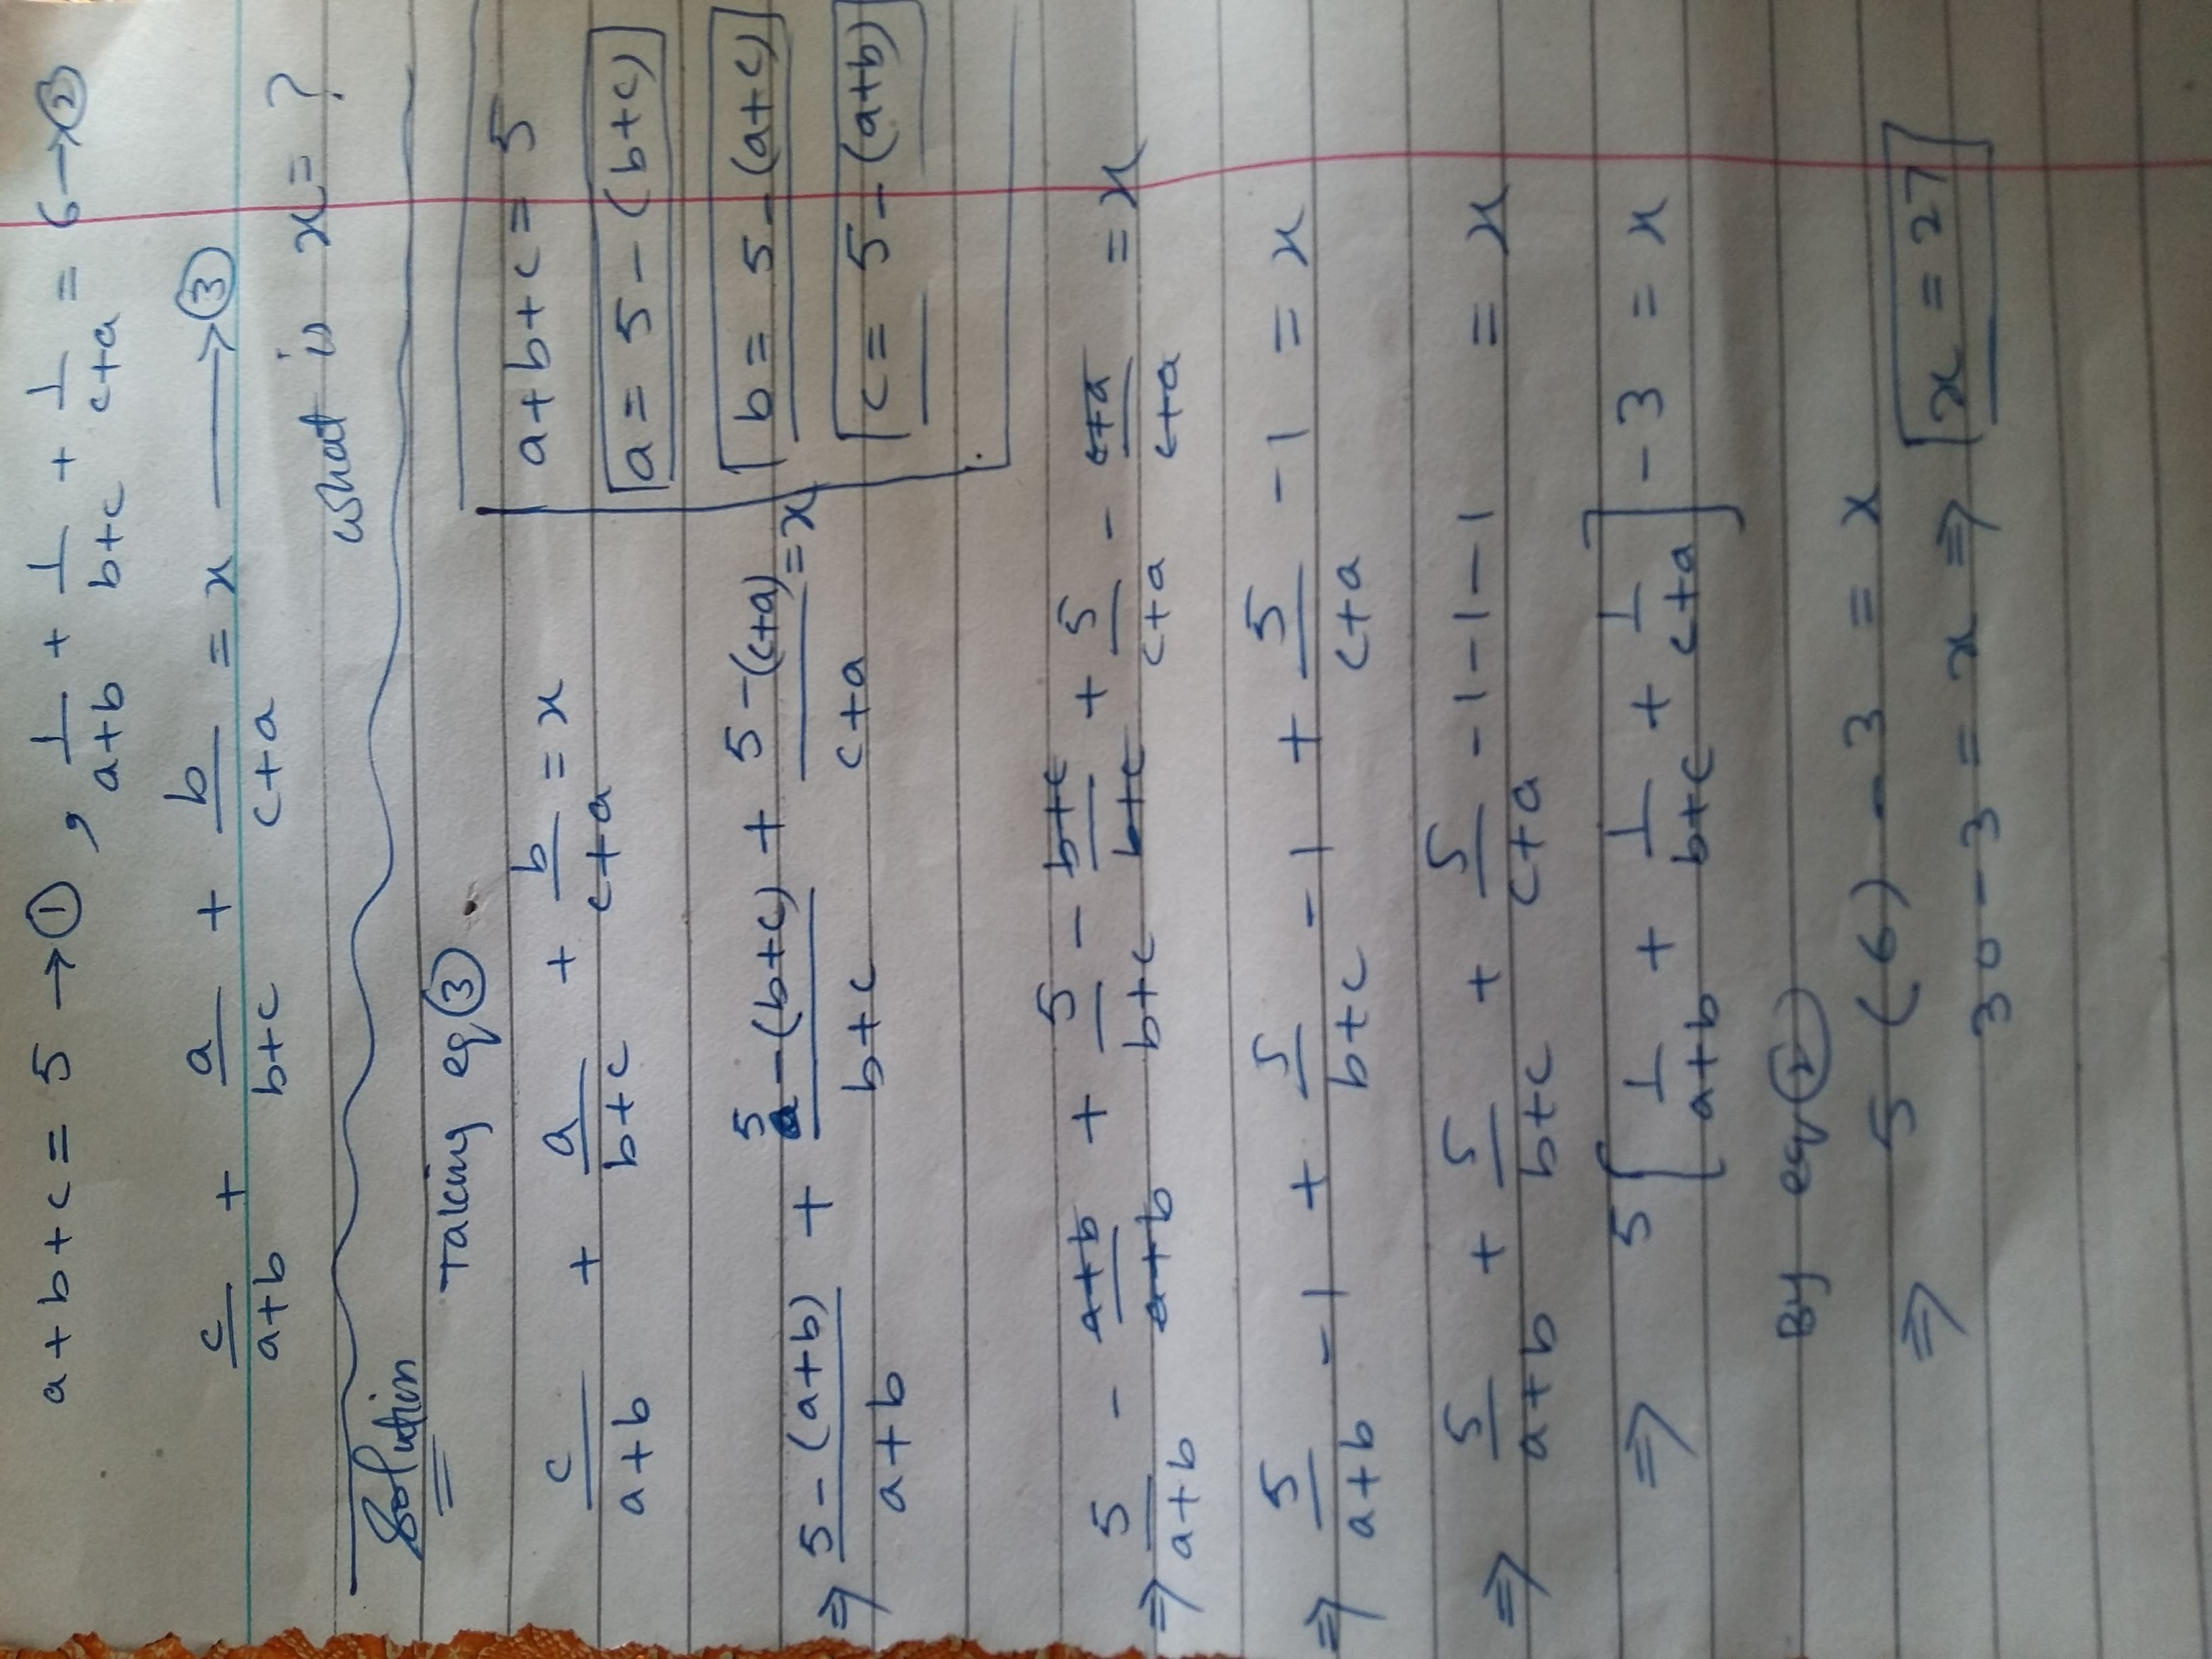 a + b + c = 5 → ① , 1/(a+b) + 1/(b+c) + 1/(c+a) = 6 → ②
c/(a+b) + a/(b+c) + b/(c+a) = x → ③
what is x = ?
Solution
Taking eq ③
c/(a+b) + a/(b+c) + b/(c+a) = x
a + b + c = 5
a = 5 - (b+c)
b = 5 - (a+c)
c = 5 - (a+b)
⇒ (5 - (a+b))/(a+b) + (5 - (b+c))/(b+c) + (5 - (c+a))/(c+a) = x
⇒ 5/(a+b) - (a+b)/(a+b) + 5/(b+c) - (b+c)/(b+c) + 5/(c+a) - (c+a)/(c+a) = x
⇒ 5/(a+b) - 1 + 5/(b+c) - 1 + 5/(c+a) - 1 = x
⇒ 5/(a+b) + 5/(b+c) + 5/(c+a) - 1 - 1 - 1 = x
⇒ 5 [ 1/(a+b) + 1/(b+c) + 1/(c+a) ] - 3 = x
By eq ②
⇒ 5 (6) - 3 = x
30 - 3 = x ⇒ x = 27